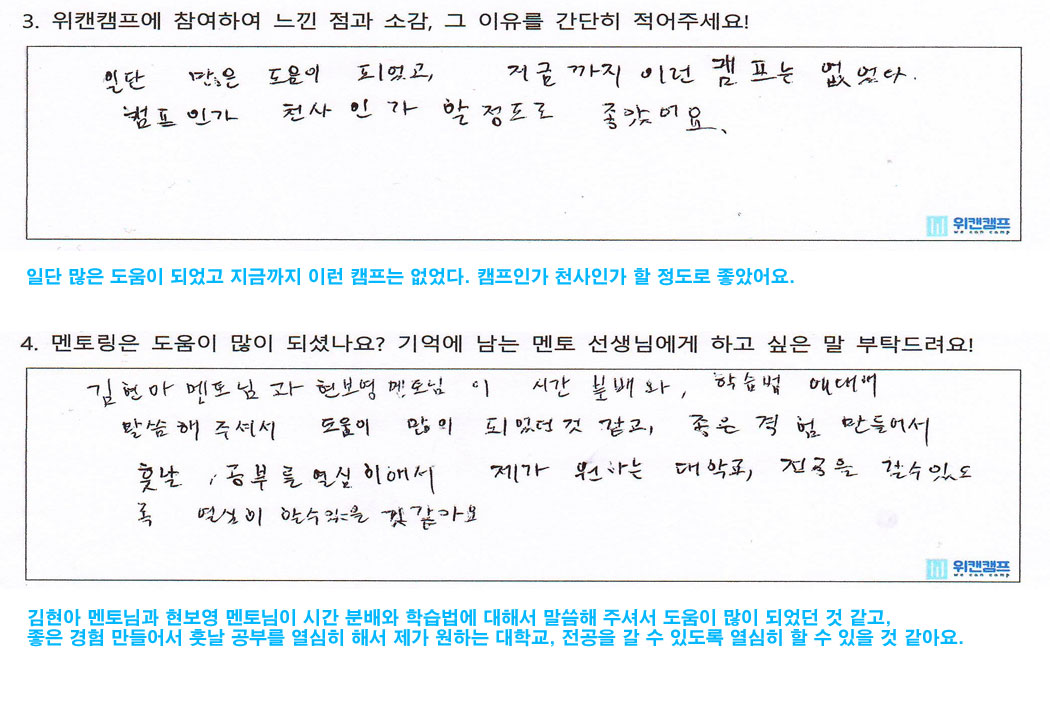 3. 위캔캠프에 참여하여 느낀 점과 소감, 그 이유를 간단히 적어주세요!
일단 많은 도움이 되었고, 저금까지 이런 캠프는 없었다.
캠프인가 천사인가 할정도로 좋았어요.
위캔캠프
we can camp
일단 많은 도움이 되었고 지금까지 이런 캠프는 없었다. 캠프인가 천사인가 할 정도로 좋았어요.
4. 멘토링은 도움이 많이 되셨나요? 기억에 남는 멘토 선생님에게 하고 싶은 말 부탁드려요!
김현아 멘토님과 현보영 멘토님이 시간 분배와, 학습법 에대해
말씀해주셔서 도움이 많이 되었던것 같고, 좋은 경험 만들어서
훗날, 공부를 열심이해서 제가 원하는 대학교, 전공을 갈수있도
록 열심이 할수있을 것같아요
위캔캠프
we can camp
김현아 멘토님과 현보영 멘토님이 시간 분배와 학습법에 대해서 말씀해 주셔서 도움이 많이 되었던 것 같고,
좋은 경험 만들어서 훗날 공부를 열심히 해서 제가 원하는 대학교, 전공을 갈 수 있도록 열심히 할 수 있을 것 같아요.